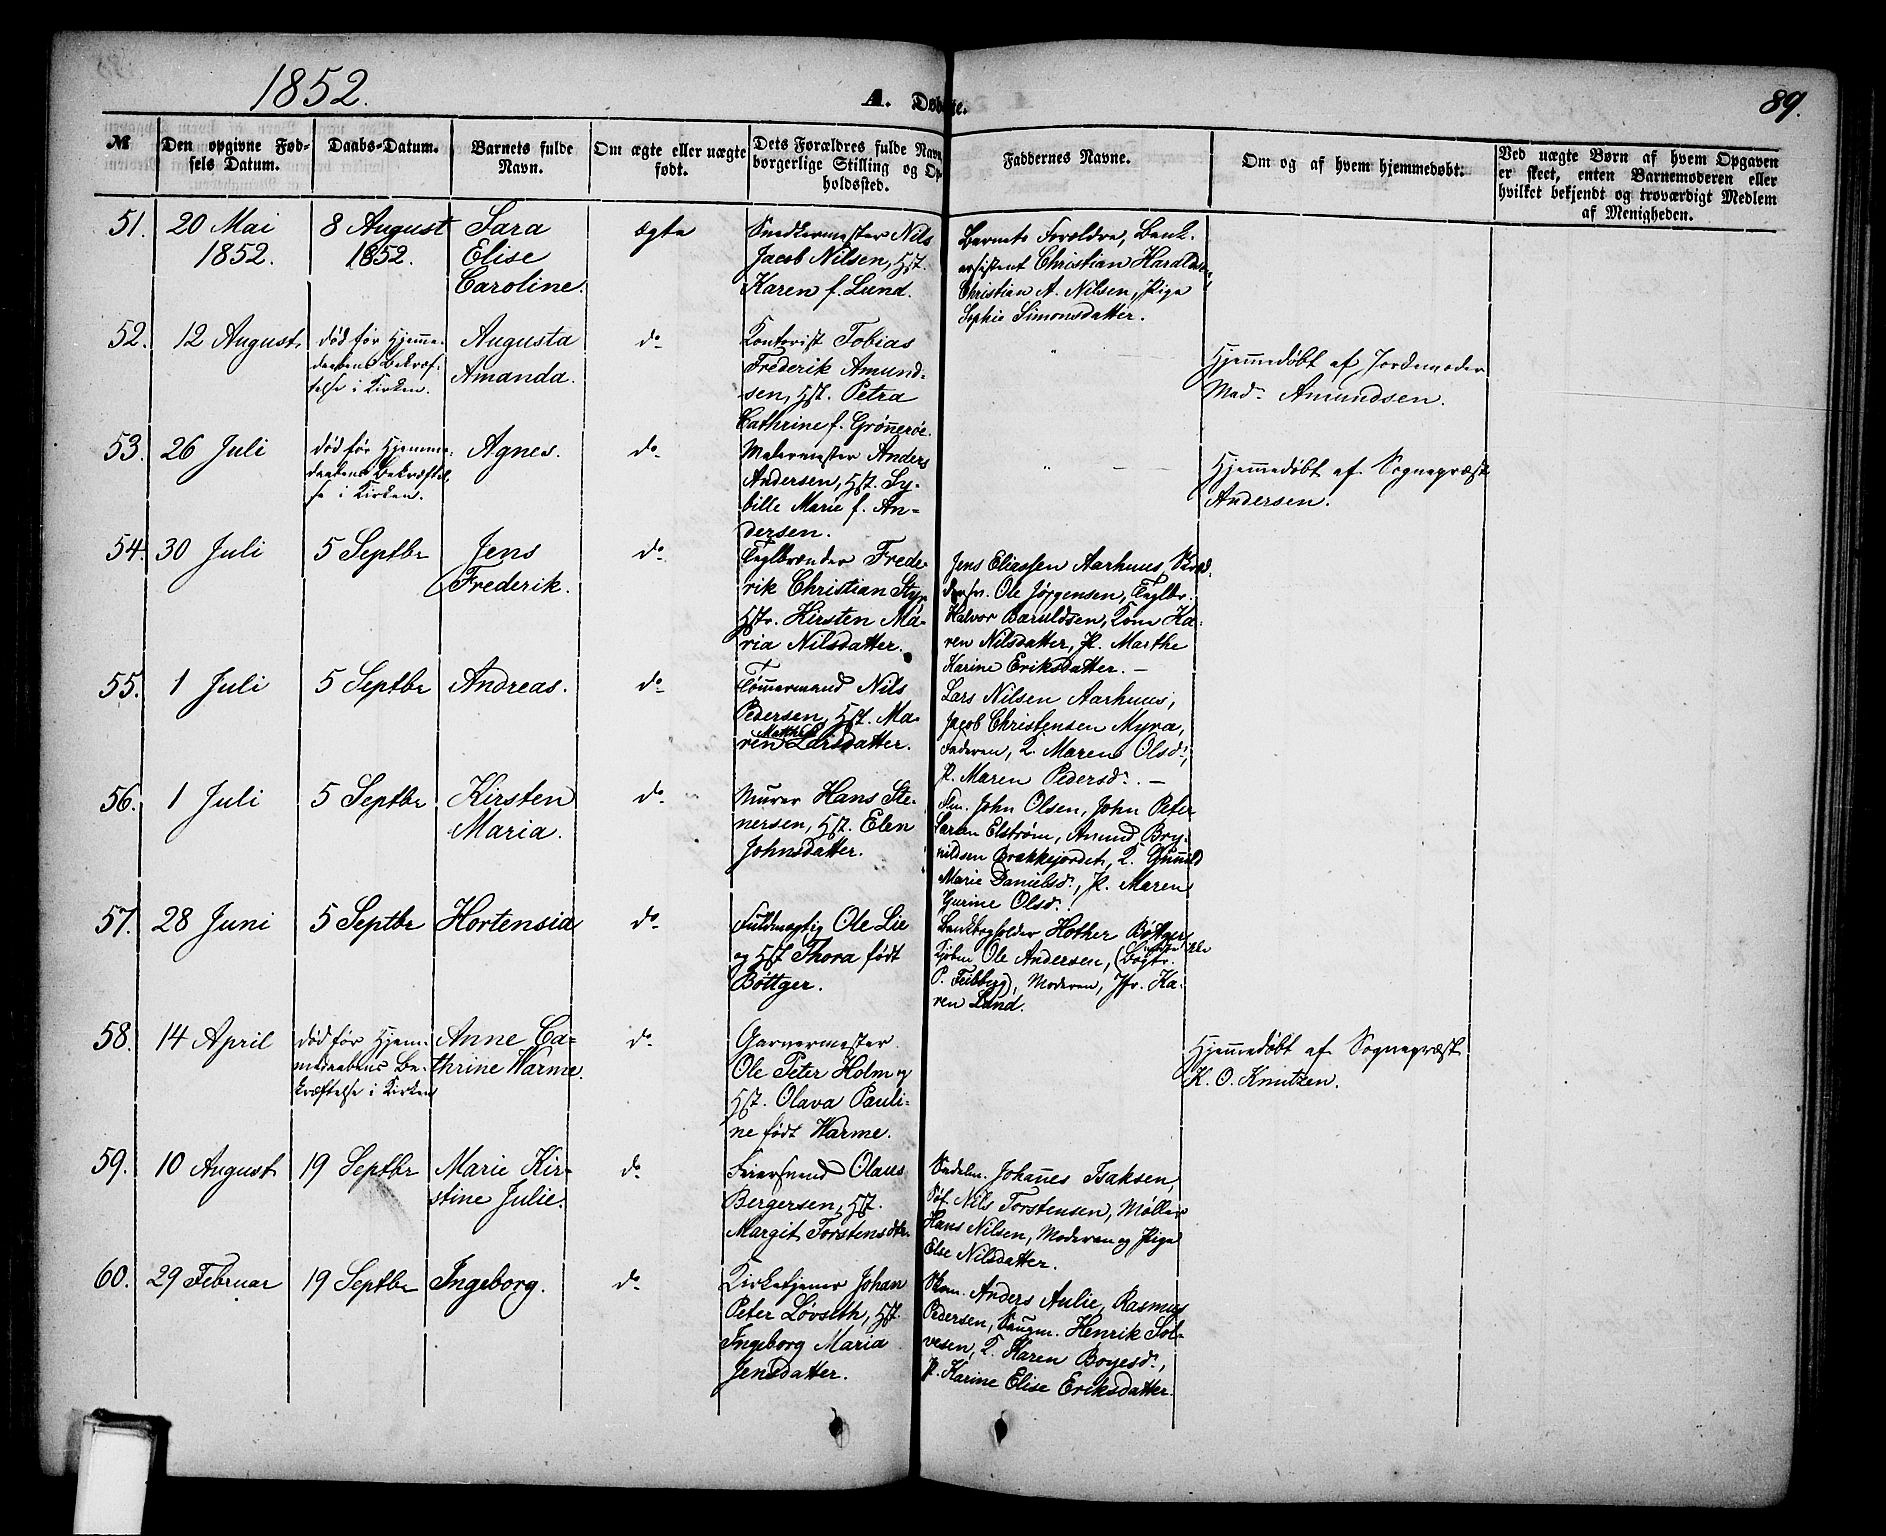 1852.
A. Døbte.
89.
№
Den opgivne Fød-
sels Datum.
Daabs-Datum.
Barnets fulde
Navn.
Om ægte eller uægte
født.
Dets Forældres fulde Navn,
borgerlige Stilling og Op-
holdssted.
Faddernes Navne.
Om og af hvem hjemmedøbt.
Ved uægte Børn af hvem Opgaven
er skeet, enten Barnemoderen eller
hvilket bekjendt og troværdigt Medlem
af Menigheden.
51.
20 Mai
1852.
8 August
1852.
Sara
Elise
Caroline.
ægte
Snedkermester Nils
Jacob Nilsen, Hst.
Karen f. Lund.
Barnets Forældre, Bank-
assistent Christian Haraldsen,
Christian A. Nilsen, Pige
Sophie Simonsdatter.
52.
12 August
død før Hjemme-
daabens Bekræf-
telse i Kirken.
Augusta
Amanda.
do
Kontorist Tobias
Frederik Amund-
sen, Hst. Petra
Cathrine f. Grønnerøe.
Hjemmedøbt af Jordemoder
Mad. Amundsen.
53.
26 Juli
død før Hjemme-
daabens Bekræftel-
se i Kirken.
Agnes.
do
Malermester Anders
Andersen, Hst. Sy-
bille Marie f. An-
dersen.
Hjemmedøbt af Sognepræst
Andersen.
54.
30 Juli
5 Septbr
Jens
Frederik.
do
Teglbrænder Frede-
rik Christian Styr
Hstr. Kirsten Ma-
ria Nilsdatter.
Jens Eliassen Aarhuus, Skræd-
dersv. Ole Jørgensen, Teglbr.
Halvor Baruldsen, Kone Ka-
ren Nilsdatter, P. Marthe
Karine Eriksdatter. —
55.
1 Juli
5 Septbr
Andreas.
do
Tømmermand Nils
Pedersen, Hst. Ma-
ren Larsdatter.
Lars Nilsen Aarhuus,
Jacob Christensen Myra,
Faderen, K. Maren Olsd.,
P. Maren Pedersd. —
56.
1 Juli
5 Septbr
Kirsten
Maria.
do
Murer Hans Ste-
nersen, Hst. Elen
Johnsdatter.
John Olsen, John Peter
Larsen Elstrøm, Amund Bry-
nildsen Brakkejordet, K. Gunnild
Marie Danielsd., P. Maren
Gurine Olsd.
57.
28 Juni
5 Septbr
Hortensia
do
Fuldmægtig Ole Lie
og Hst. Thora født
Bøttger.
Bankbogholder Hother Bøttger
Kjøbm. Ole Andersen, (Bogtr.
P. Feilberg), Moderen, Jfr. Ka-
ren Lund.
58.
14 April
død før Hjem-
medaabens Be-
kræftelse i Kirken
Anne Ca-
thrine Warme.
do
Garvermester
Ole Peter Holm og
Hst. Olava Pauli-
ne født Warme.
Hjemmedøbt af Sognepræst
K. O. Knutzen.
59.
10 August
19 Septbr
Marie Kir-
stine Julie.
do
Feiersvend Olaus
Bergersen, Hst.
Margit Torstensdtr.
Sadelm. Johannes Isaksen,
Nils Torstensen, Møller
Hans Nilsen, Moderen og Pige
Else Nilsdatter.
60.
29 Februar
19 Septbr
Ingeborg.
do
Kirketjener Johan
Peter Løvseth, Hst.
Ingeborg Maria
Jensdatter.
Skom. Anders Aulie, Rasmus
Pedersen, Saugm. Henrik Sol-
vesen, K. Karen Boyesd.,
P. Karine Elise Eriksdatter.